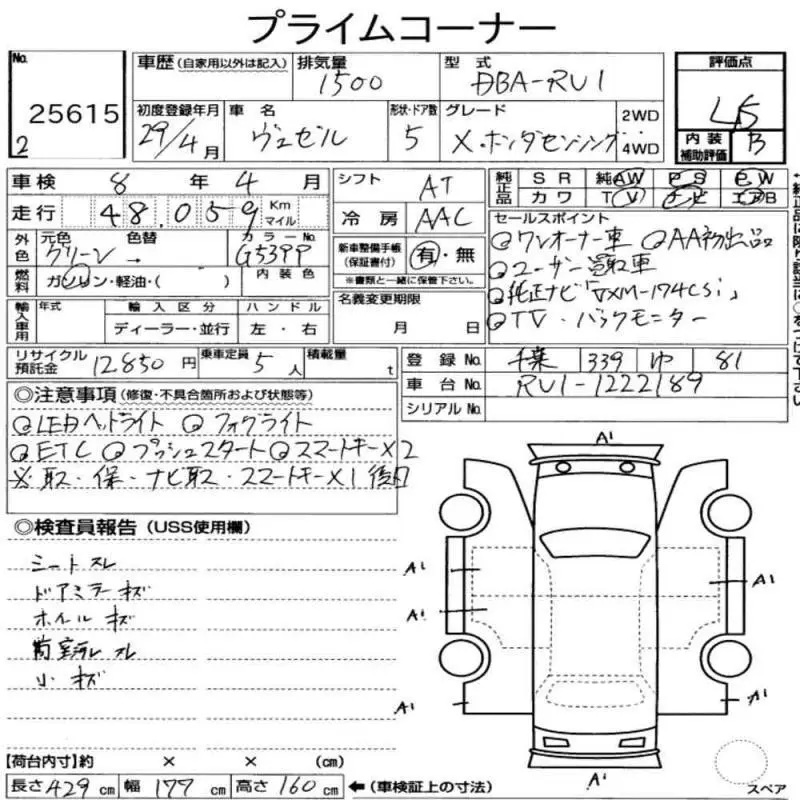 プライムコーナー
No. 25615
2
車歴 (自家用以外は記入)
排気量 1500
型式 DBA-RU1
評価点 4.5
初度登録年月 29/4月
車名 ヴェゼル
形状・ドア数 5
グレード X・ホンダセンシング
2WD
4WD
内装補助評価 B
車検 8年4月
シフト AT
純正品 SR 純AW PS PW
カワ TV ナビ エアB
走行 48,059 Km マイル
冷房 AAC
セールスポイント
◎ワンオーナー車 ◎AA初出品
◎ユーザー買取車
◎純正ナビ「VXM-174CSi」
◎TV・バックモニター
外色 元色 グリーン 色替 → カラーNo. G539P
燃料 ガソリン・軽油・( ) 内装色
新車整備手帳(保証書付) 有・無
※書類と一緒に保管下さい。
輸入車用 年式 輸入区分 ハンドル
ディーラー・並行 左・右
名義変更期限
月 日
リサイクル預託金 12850円 乗車定員 5人 積載量 t
登録No. 千葉 339 ゆ 81
車台No. RU1-1222189
シリアルNo.
◎注意事項 (修復・不具合箇所および状態等)
◎LEDヘッドライト ◎フォグライト
◎ETC ◎プッシュスタート ◎スマートキー×2
※取・保・ナビ取・スマートキー×1 後日
◎検査員報告 (USS使用欄)
シートスレ
ドアミラーキズ
ホイルキズ
荷室スレ
小キズ
A1
A1
A1
A1
A1
A1
A1
【荷台内寸】約 × × (cm)
長さ 429 cm 幅 177 cm 高さ 160 cm ←(車検証上の寸法)
スペア